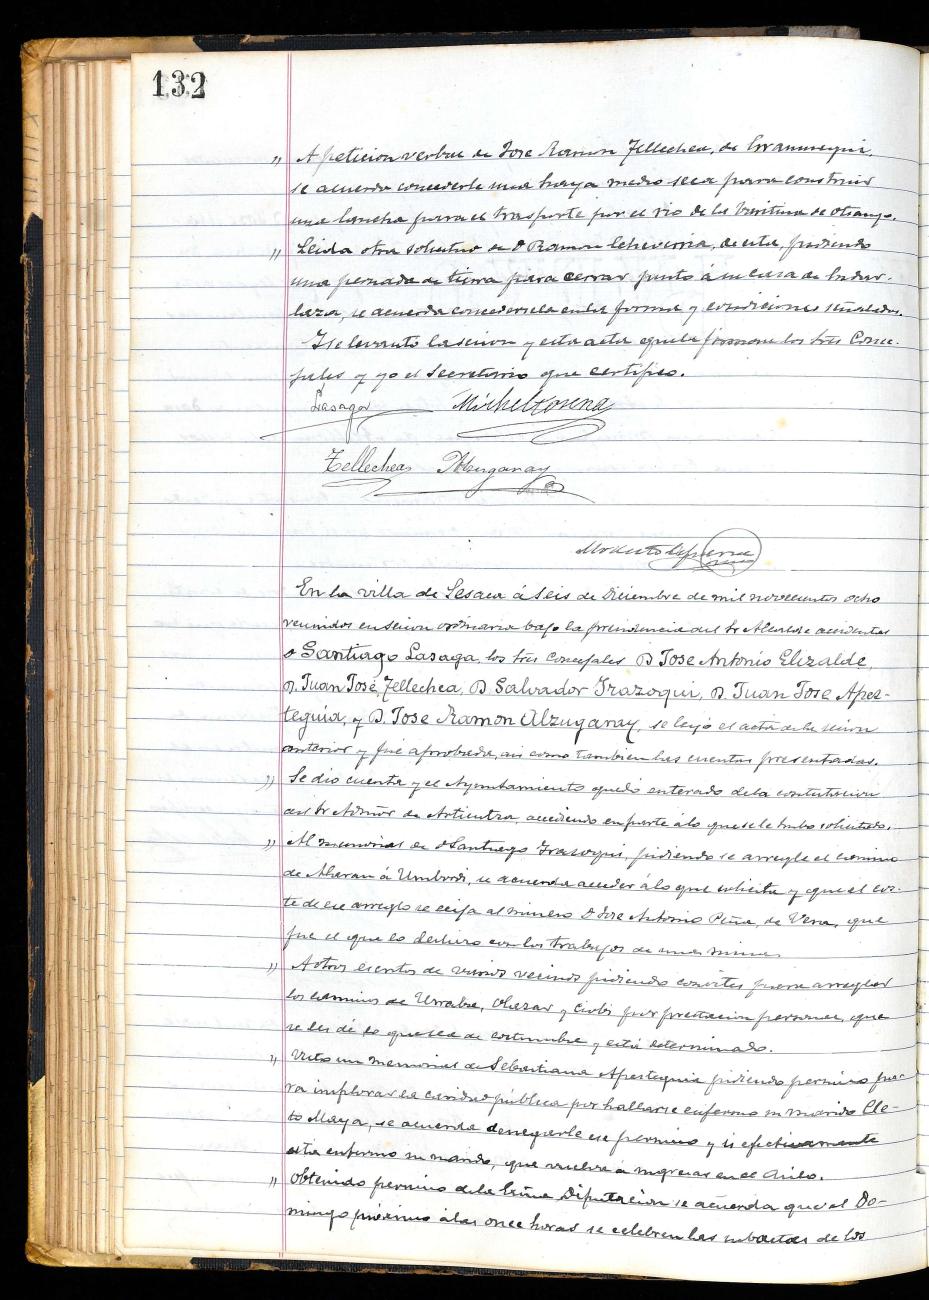 132
" A peticion verbal de Jose Ramon Tellechea, de
se acuerda concederle una haya medio seca para construir
una lancha para el trasporte por el rio de la
" Leida otra solicitud de D Ramon Echeverria, de esta, pidiendo
una peonada de tierra para cerrar junto á su casa de Endar-
laza, se acuerda concedersela en la forma y condiciones señaladas.
Y se levantó la sesion y esta acta que la firman los tres Conce-
jales y yo el Secretario que certifico.
Lasaga Micheltorena
Tellechea Alzugaray
Modesto
En la villa de Lesaca á seis de Diciembre de mil novecientos ocho
reunidos en sesion ordinaria bajo la presidencia del Sr Alcalde accidental
D Santiago Lasaga, los tres Concejales D Jose Antonio Elizalde,
D. Juan José Tellechea, D Salvador Irazoqui, D. Juan Jose Apes-
teguia, y D. Jose Ramon Alzugaray, se leyó el acta de la sesion
anterior y fué aprobada, asi como tambien las cuentas presentadas.
" Se dio cuenta y el Ayuntamiento quedó enterado de la contestacion
del Sr Admor de Articutza, accediendo en parte á lo que se le hubo solicitado.
" Al memorial de D Santiago Irazoqui, pidiendo se arregle el camino
de Alaran á Umbordi, se acuerda acceder á lo que solicita y que el cos-
te de ese arreglo se exija al minero D Jose Antonio Peña, de Vera, que
fue el que lo deshizo con los trabajos de una mina.
" A otros escritos de varios vecinos pidiendo convites para arreglar
los caminos de Urrabe, Olazar y por prestacion personal, que
se les dé lo que sea de costumbre y está determinado.
" Visto un memorial de Sebastiana Apesteguia pidiendo permiso pa-
ra implorar la caridad pública por hallarse enfermo su marido Cle-
to Maya, se acuerda denegarle ese permiso y si efectivamente
esta enfermo su marido, que vuelva a ingresar en el Asilo.
" Obtenido permiso de la Exma Diputacion se acuerda que el Do-
mingo próximo á las once horas se celebren las subastas de los